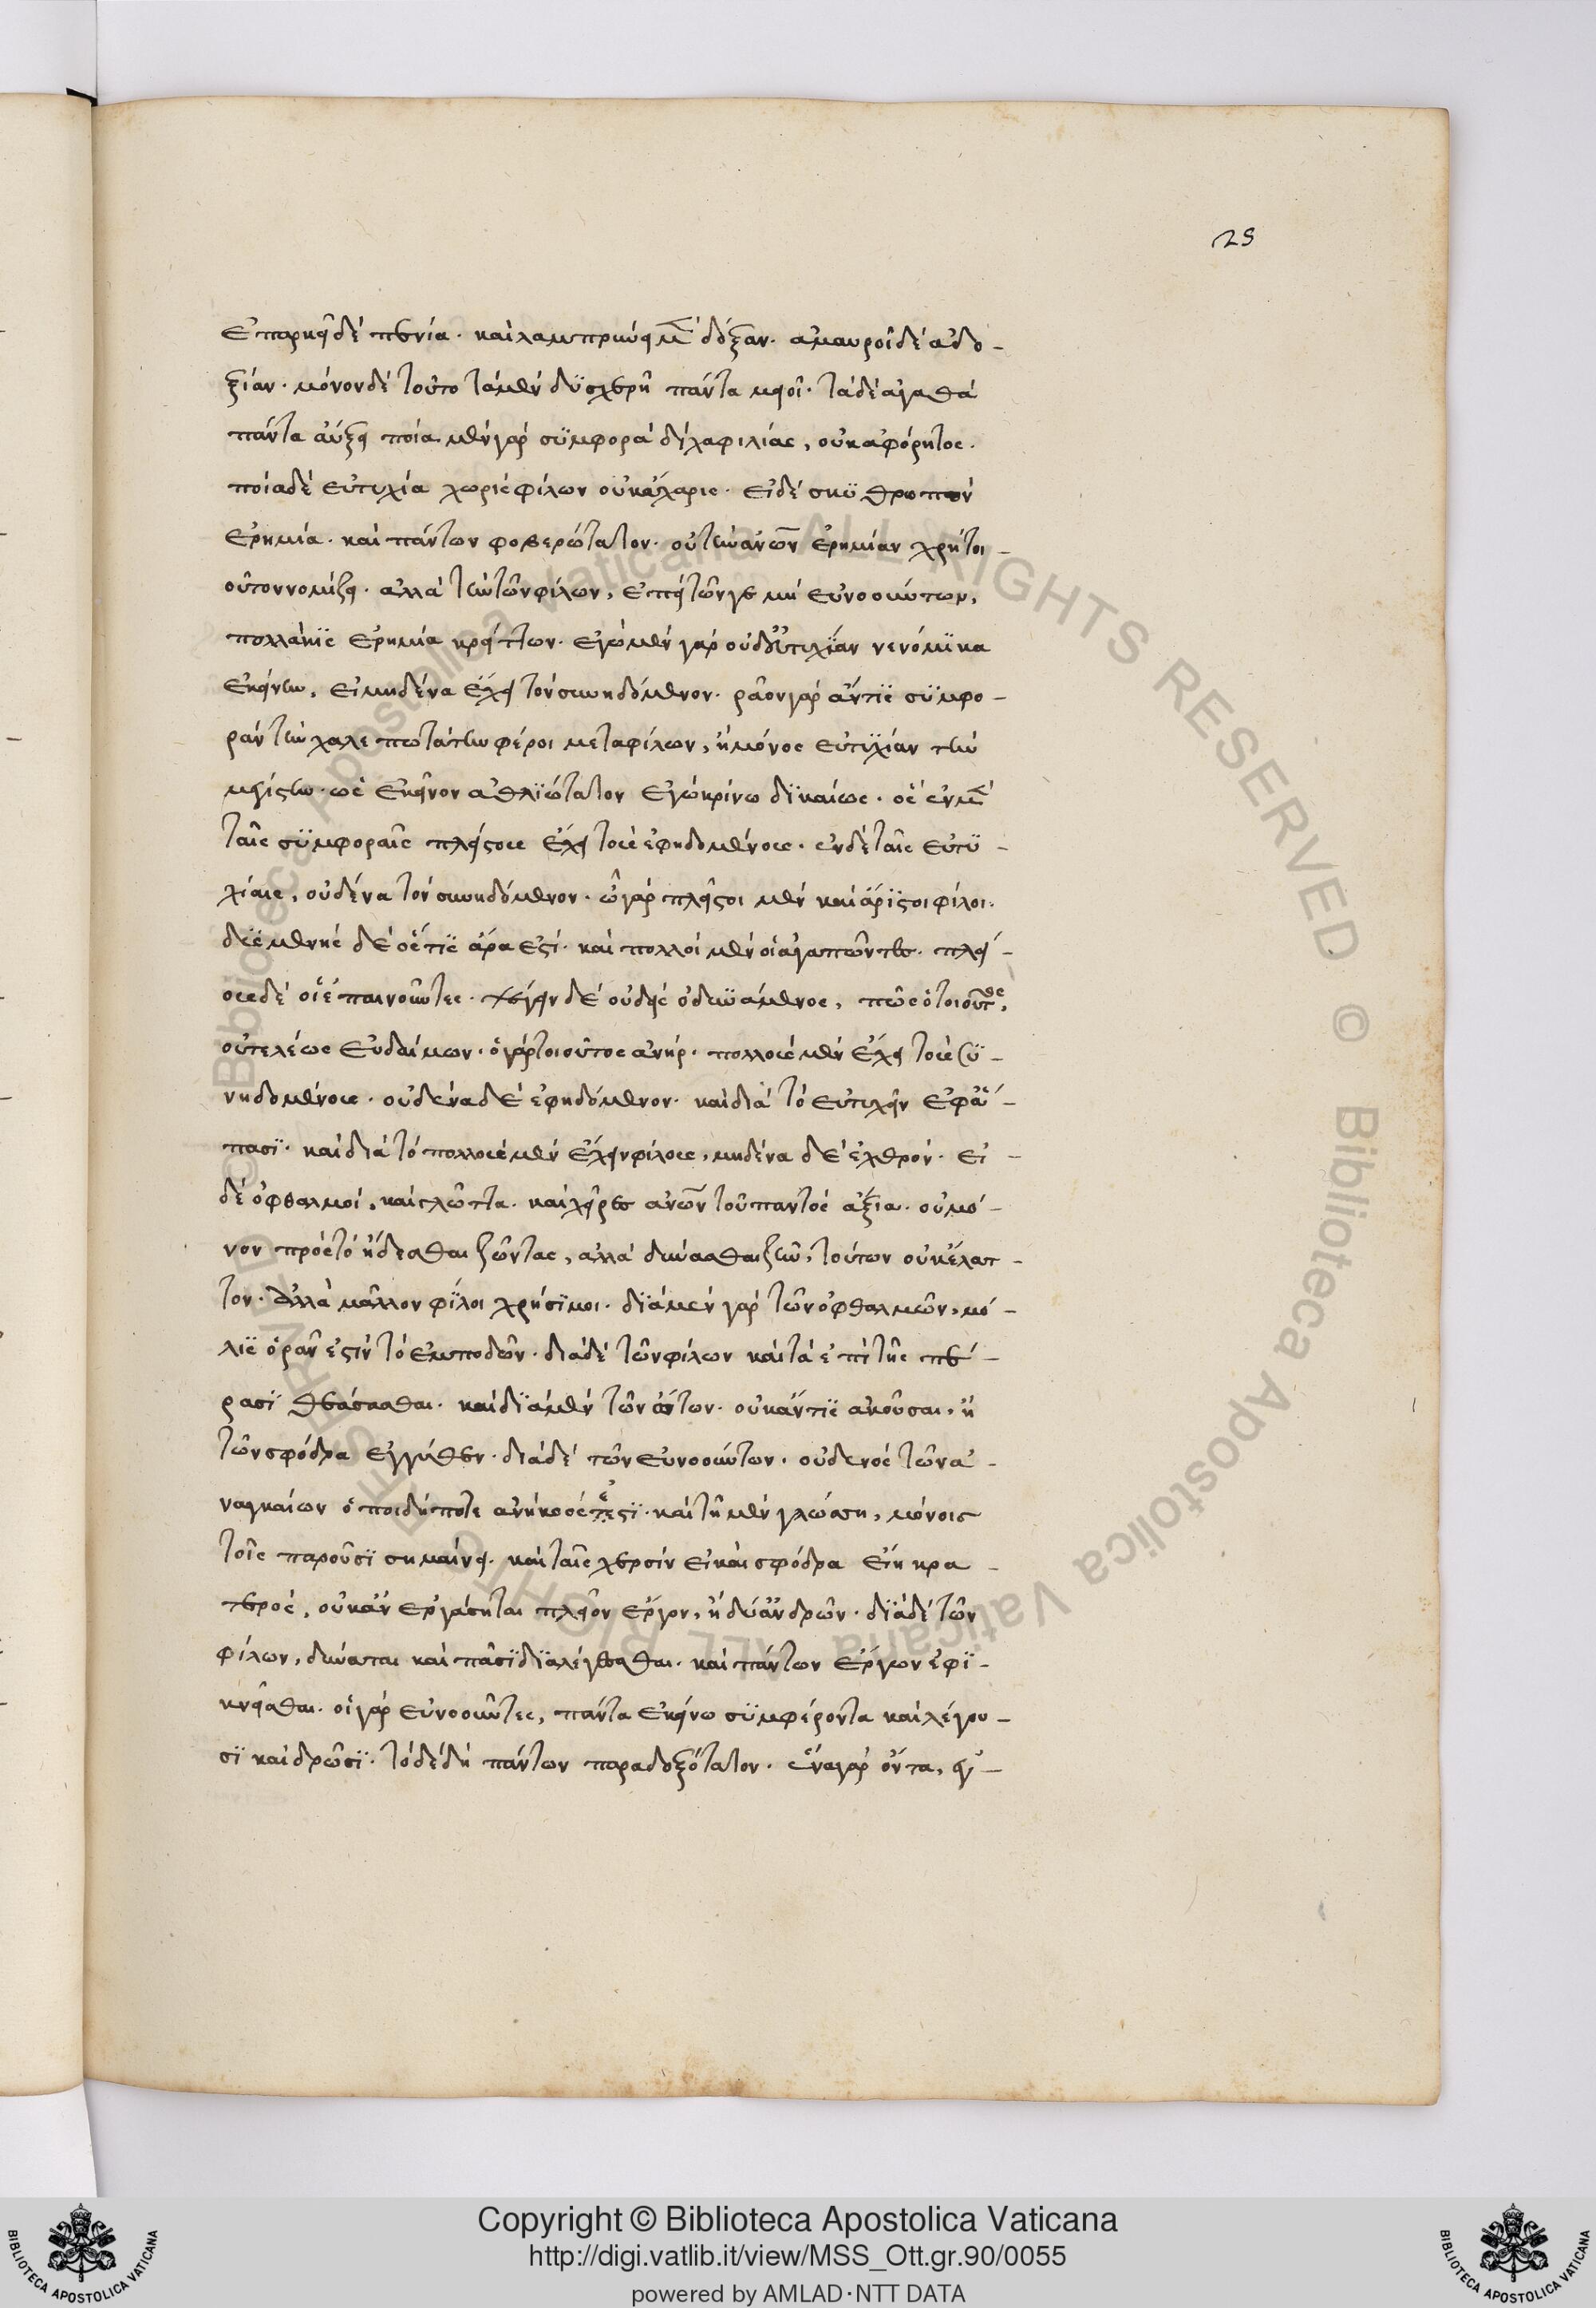 25
ἐπαρκεῖ δὲ πενία. καὶ λαμπρύνει μὲν δόξαν. ἀμαυροῖ δὲ ἀδο-
ξίαν. μόνον δὲ τοῦτο τὰ μὲν δυσχερῆ πάντα μειοῖ. τὰ δὲ ἀγαθὰ
πάντα αὔξει ποία μὲν γὰρ συμφορὰ δίχα φιλίας, οὐκ ἀφόρητος.
ποία δὲ εὐτυχία χωρὶς φίλων οὐκ ἄχαρις. εἰ δὲ σκυθρωπὸν
ἐρημία. καὶ πάντων φοβερώτατον. οὐ τὴν ἀνων ἐρημίαν χρή τοι-
οῦτον νομίζειν. ἀλλὰ τὴν τῶν φίλων, ἐπεὶ τῶν γε μὴ εὐνοούντων,
πολλάκις ἐρημία κρείττων. ἐγὼ μὲν γὰρ οὐδ' εὐτυχίαν νενόμικα
ἐκείνην, εἰ μηδένα ἔχει τὸν συνηδόμενον. ρᾶον γὰρ ἄν τις συμφο-
ρὰν τὴν χαλεπωτάτην φέροι μετὰ φίλων, ἢ μόνος εὐτυχίαν τὴν
μεγίστην. ὡς ἐκεῖνον ἀθλιώτατον ἐγὼ κρίνω δικαίως. ὃς ἐν μὲν
ταῖς συμφοραῖς πλείστους ἔχει τοὺς ἐφηδομένους. ἐν δὲ ταῖς εὐτυ-
χίαις, οὐδένα τὸν συνηδόμενον. ᾧ γὰρ πλεῖστοι μὲν καὶ ἄριστοι φίλοι.
δυσμενὴς δὲ ὅς τις ἄρα ἐστί. καὶ πολλοὶ μὲν οἱ ἀγαπῶντες. πλεί-
ους δὲ οἱ ἐπαινοῦντες. ψέγειν δὲ οὐδεὶς ὁ δυνάμενος, πῶς ὁ τοιοῦτος,
οὐ τελέως εὐδαίμων. ὁ γὰρ τοιοῦτος ἀνὴρ. πολλοὺς μὲν ἔχει τοὺς συ-
νηδομένους. οὐδένα δὲ ἐφηδόμενον. καὶ διὰ τὸ εὐτυχεῖν ἐφ' ἅ-
πασι. καὶ διὰ τὸ πολλοὺς μὲν ἔχειν φίλους, μηδένα δὲ ἐχθρόν. εἰ
δὲ ὀφθαλμοί, καὶ γλῶττα. καὶ χεῖρες ἀνων τοῦ παντὸς ἄξια. οὐ μό-
νον πρὸς τὸ ἥδεσθαι ζῶντας, ἀλλὰ δύνασθαι ζῆν, τούτων οὐκ ἔλατ-
τον. ἀλλὰ μᾶλλον φίλοι χρήσιμοι. διὰ μὲν γὰρ τῶν ὀφθαλμῶν, μό-
λις ὁρᾶν ἐστιν τὸ ἐμποδῶν. διὰ δὲ τῶν φίλων καὶ τὰ ἐπὶ τῆς πέ-
ρασι θεάσασθαι. καὶ διὰ μὲν τῶν ὤτων. οὐκ ἄν τις ἀκοῦσαι, ἢ
τῶν σφόδρα ἐγγύθεν. διὰ δὲ τῶν εὐνοούντων. οὐδενὸς τῶν ἀ-
ναγκαίων ὁποιδήποτε ἀνήκοός ἐστι. καὶ τῇ μὲν γλώσσῃ, μόνοις
τοῖς παροῦσι σημαίνει. καὶ ταῖς χερσὶν εἰ καὶ σφόδρα εἴη κρα-
τερός, οὐκ ἂν ἐργάσηται πλεῖον ἔργον, ἢ δύ' ἀνδρῶν. διὰ δὲ τῶν
φίλων, δύναται καὶ πᾶσι διαλέγεσθαι. καὶ πάντων ἔργων ἐφι-
κνεῖσθαι. οἱ γὰρ εὐνοοῦντες, πάντα ἐκείνῳ συμφέροντα καὶ λέγου-
σι καὶ δρῶσι. τὸ δὲ δὴ πάντων παραδοξότατον. ἕνα γὰρ ὄντα,
Copyright © Biblioteca Apostolica Vaticana
http://digi.vatlib.it/view/MSS_Ott.gr.90/0055
powered by AMLAD·NTT DATA